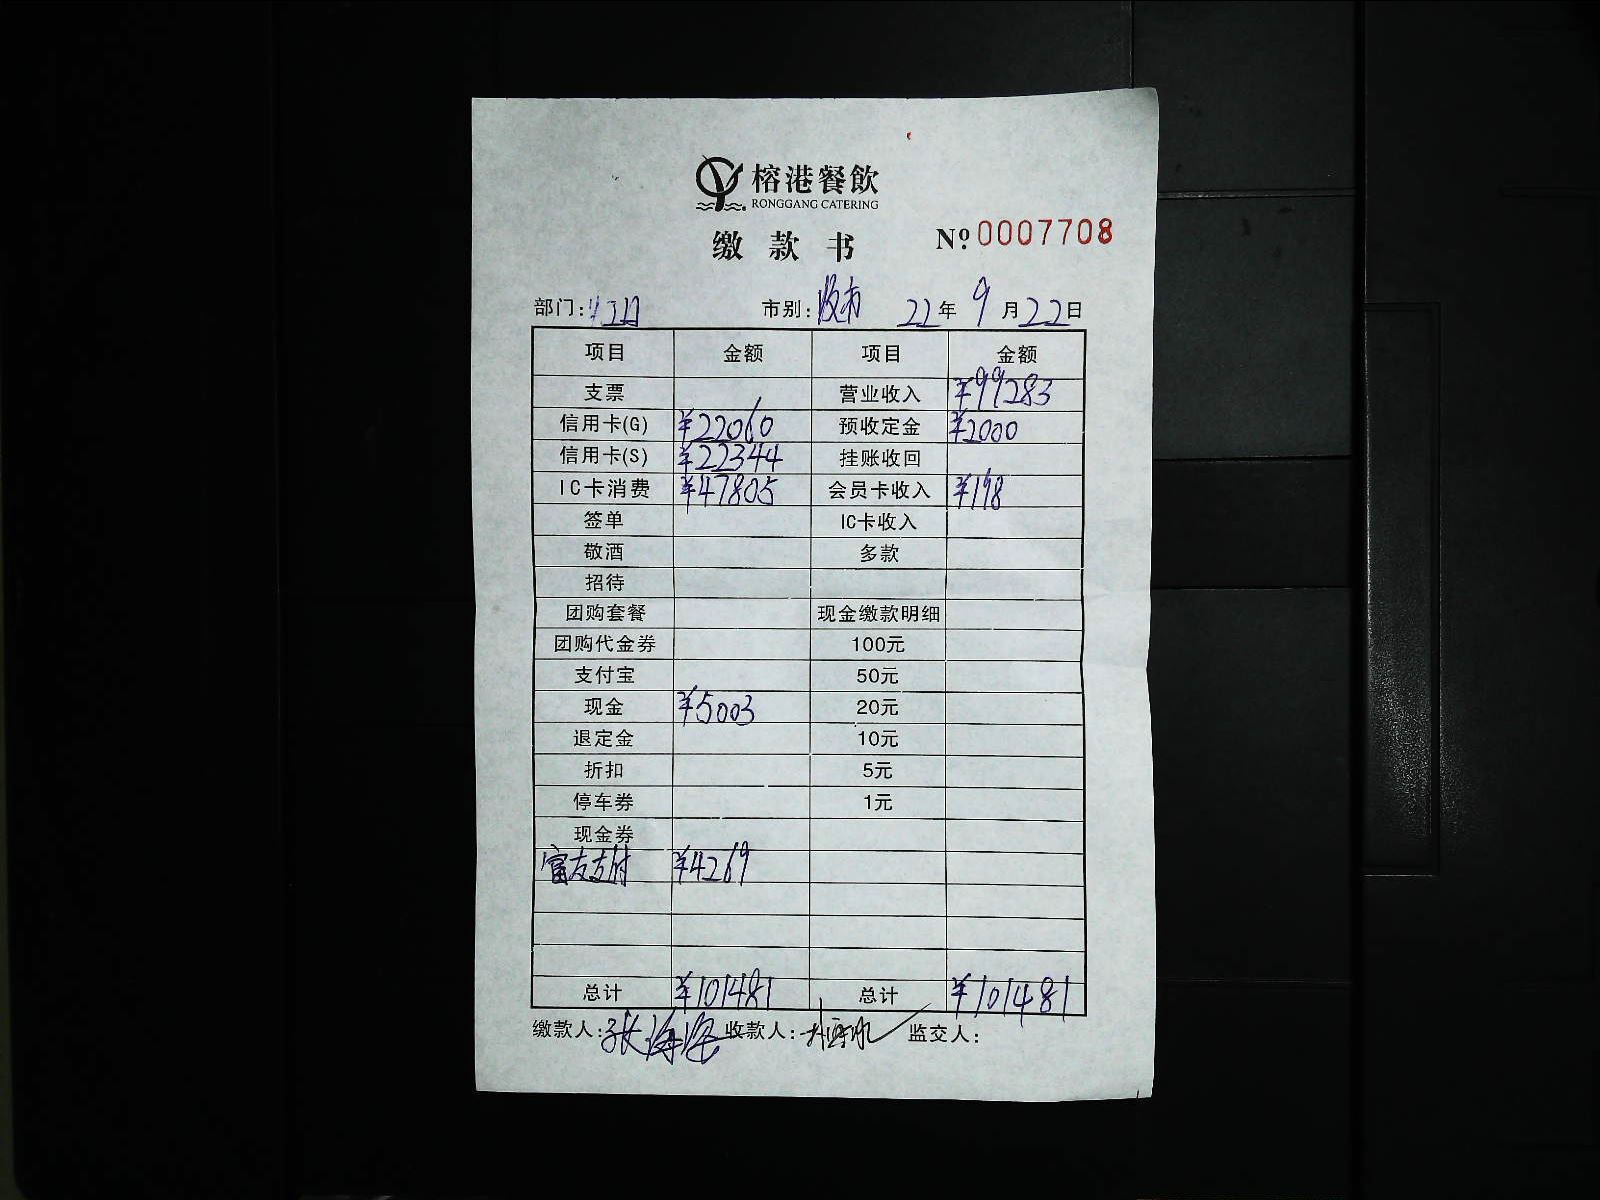 榕港餐飲
RONGGANG CATERING
缴款书 № 0007708
部门: 市别: 市 22年9月22日
项目 金额 项目 金额
支票 营业收入 ¥99283
信用卡(G) ¥22060 预收定金 ¥2000
信用卡(S) ¥22344 挂账收回
IC卡消费 ¥47805 会员卡收入 ¥198
签单 IC卡收入
敬酒 多款
招待
团购套餐 现金缴款明细
团购代金券 100元
支付宝 50元
现金 ¥5003 20元
退定金 10元
折扣 5元
停车券 1元
现金券
富友支付 ¥4269
总计 ¥101481 总计 ¥101481
缴款人:张海 收款人: 监交人: